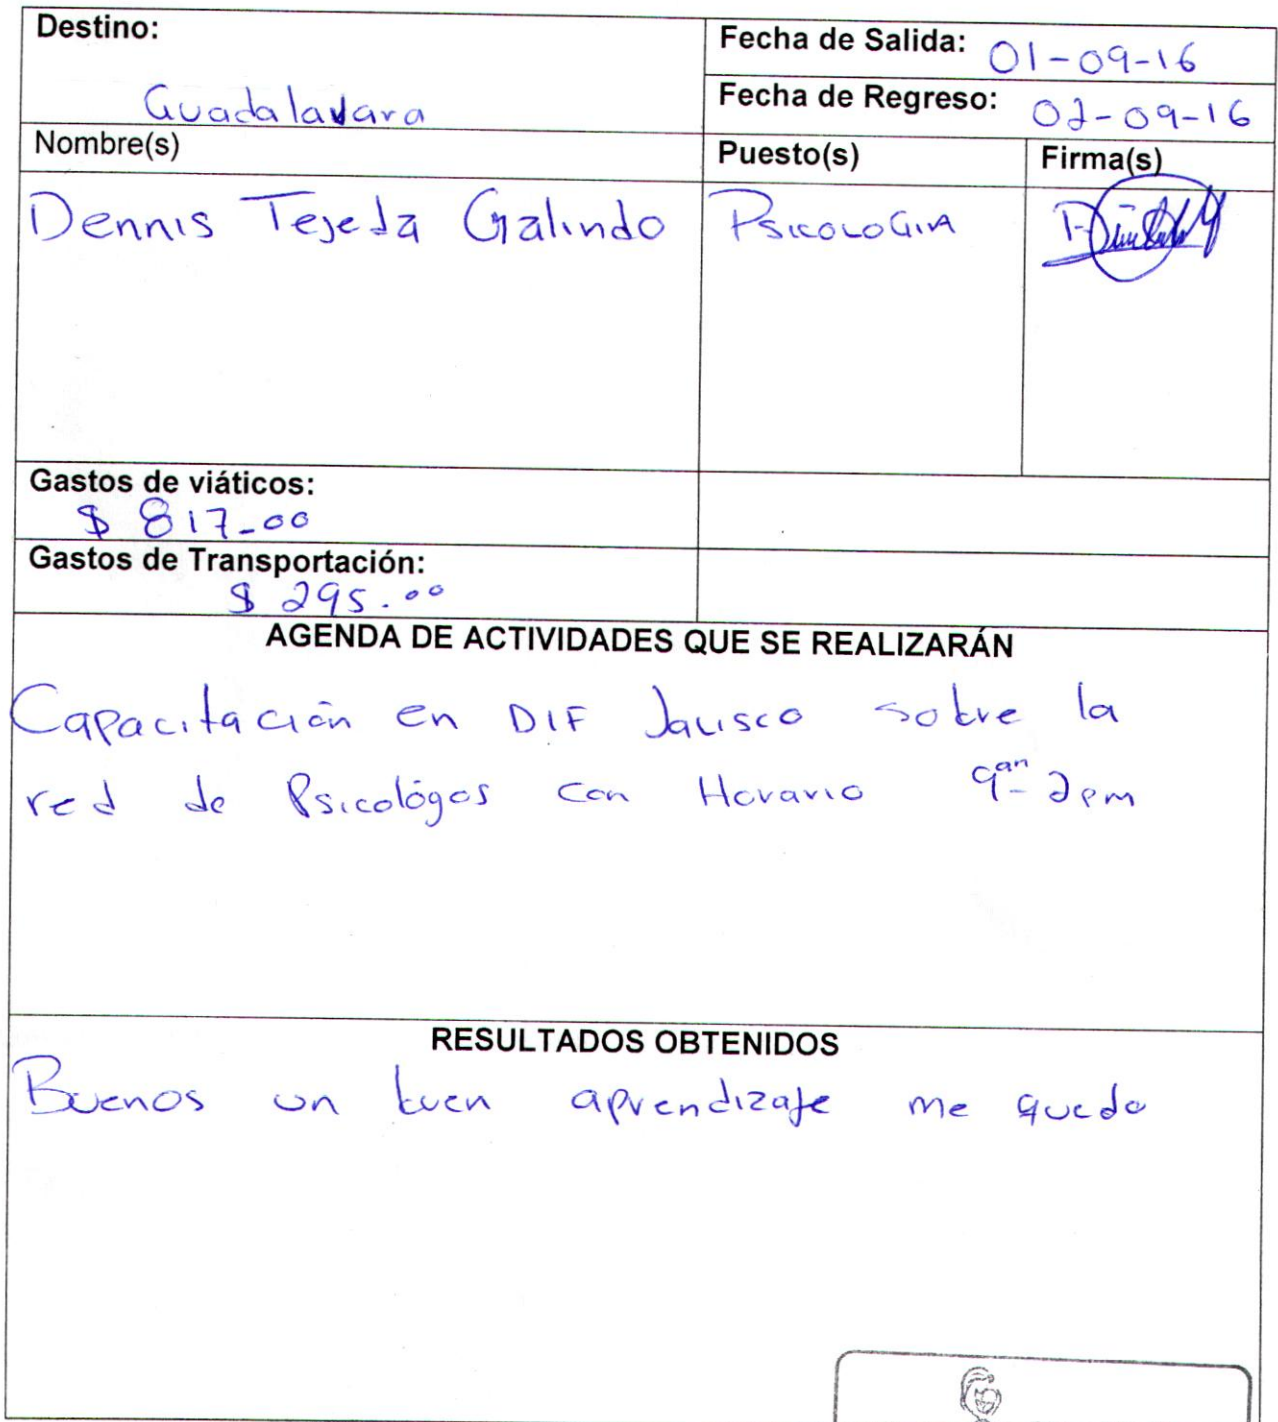 Destino:
Guadalajara
Fecha de Salida: 01-09-16
Fecha de Regreso: 02-09-16
Nombre(s)
Puesto(s)
Firma(s)
Dennis Tejeda Galindo
PSICOLOGIA
Gastos de viáticos:
$ 817-00
Gastos de Transportación:
$ 295.00
AGENDA DE ACTIVIDADES QUE SE REALIZARÁN
Capacitación en DIF Jalisco sobre la
red de Psicológos con Horario 9am - 2pm
RESULTADOS OBTENIDOS
Buenos un buen aprendizaje me quedo